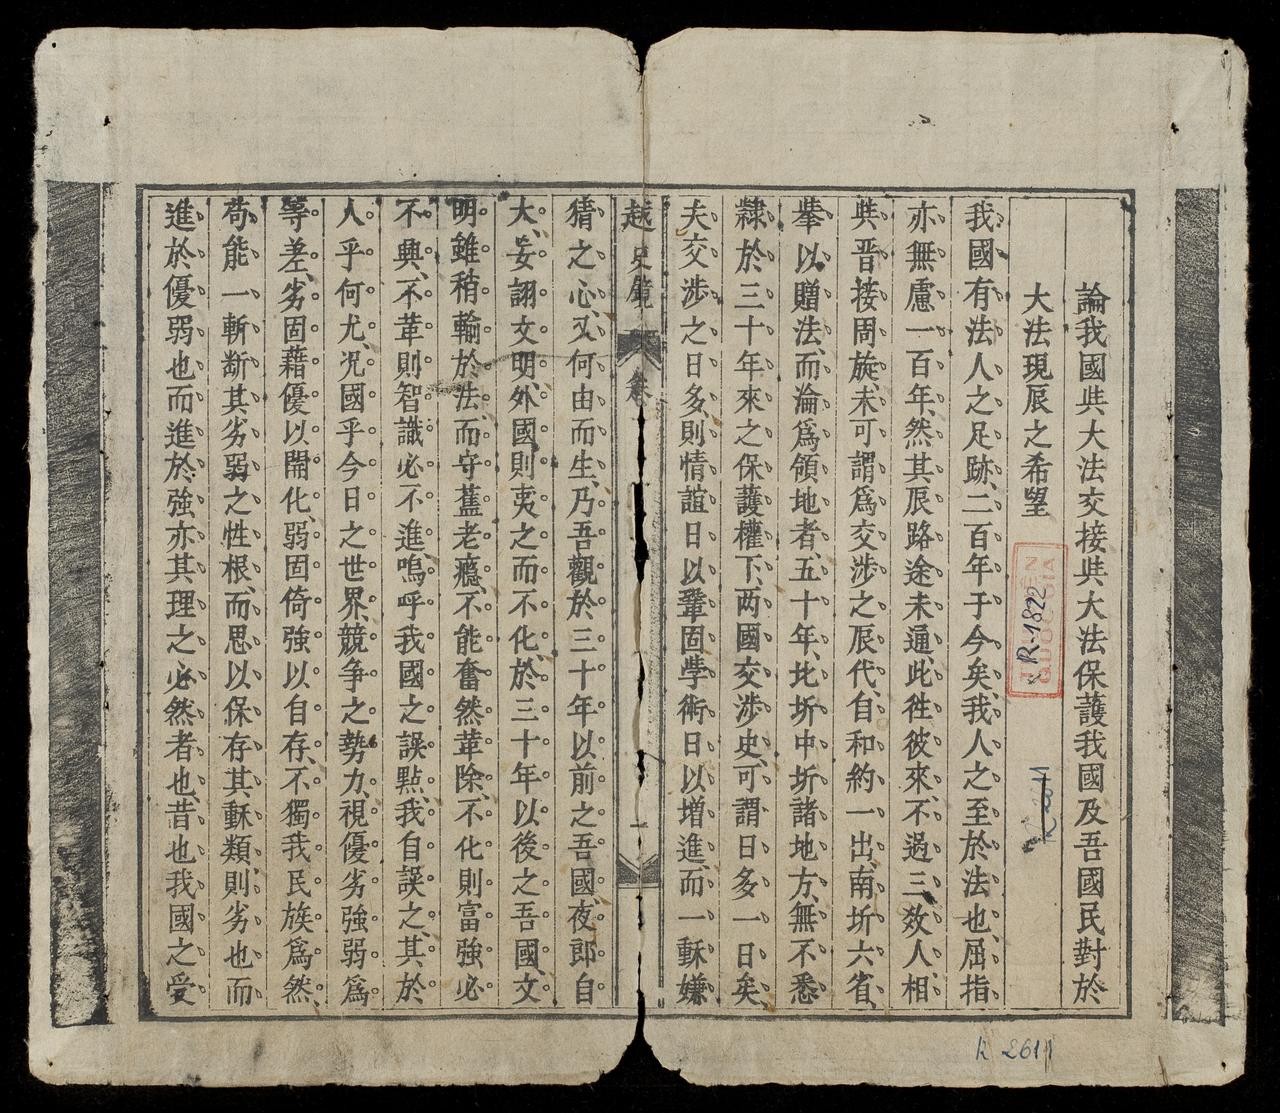 論我國與大法交接與大法保護我國及吾國民對於
大法現辰之希望
我國有法人之足跡、二百年于今矣、我人之至於法也、屈指
亦無慮一百年、然其辰路途未通、此徃彼來、不過三教人相
與晋接周旋、未可謂爲交涉之辰代、自和約一出、南圻六省、
擧以贈法、而淪爲領地者、五十年、北圻中圻諸地方、無不悉
隸於三十年來之保護權下、两國交涉史、可謂日多一日矣、
夫交涉之日多、則情誼日以鞏固、學術日以增進、而一種嫌
越史鏡
卷
一
猜之心、又何由而生、乃吾觀於三十年以前之吾國、夜郎自
大、妄詡文明、外國則夷之而不化、於三十年以後之吾國、文
明雖稍輸於法、而守舊老癮、不能奮然革除、不化則富強必
不興、不革則智識必不進、嗚呼我國之誤點、我自誤之、其於
人乎何尤、况國乎今日之世界、競争之勢力、視優劣強弱爲
等差、劣固藉優以開化、弱固倚強以自存、不獨我民族爲然、
苟能一斬断其劣弱之性根、而思以保存其種類、則劣也而
進於優、弱也而進於強、亦其理之必然者也、昔也我國之受
R.1822
QUỐC GIA
R 2611